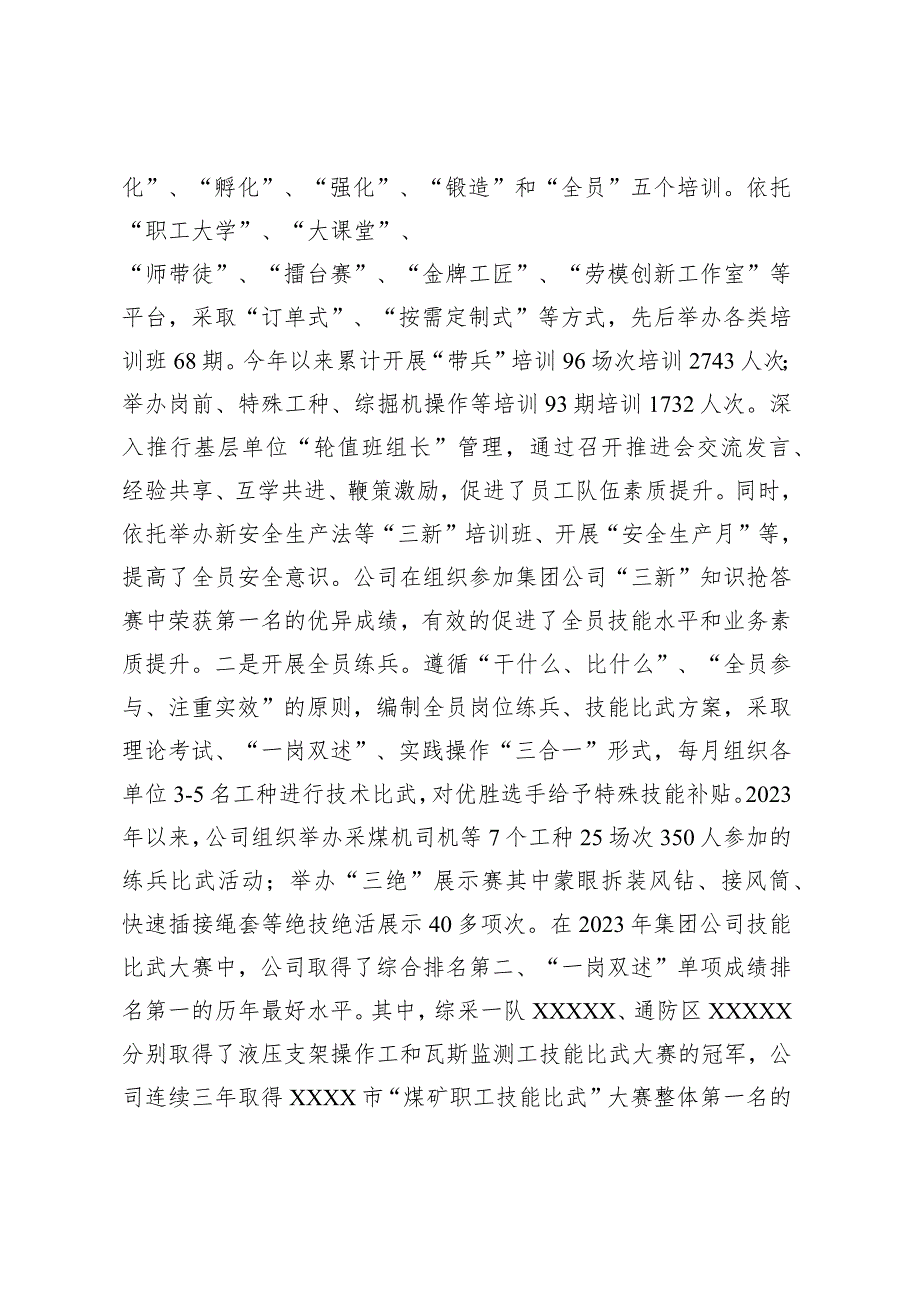 化”、“孵化”、“强化”、“锻造”和“全员”五个培训。依托
“职工大学”、“大课堂”、
“师带徒”、“擂台赛”、“金牌工匠”、“劳模创新工作室”等
平台，采取“订单式”、“按需定制式”等方式，先后举办各类培
训班 68 期。今年以来累计开展“带兵”培训 96 场次培训 2743 人次；
举办岗前、特殊工种、综掘机操作等培训 93 期培训 1732 人次。深
入推行基层单位“轮值班组长”管理，通过召开推进会交流发言、
经验共享、互学共进、鞭策激励，促进了员工队伍素质提升。同时，
依托举办新安全生产法等“三新”培训班、开展“安全生产月”等，
提高了全员安全意识。公司在组织参加集团公司“三新”知识抢答
赛中荣获第一名的优异成绩，有效的促进了全员技能水平和业务素
质提升。二是开展全员练兵。遵循“干什么、比什么”、“全员参
与、注重实效”的原则，编制全员岗位练兵、技能比武方案，采取
理论考试、“一岗双述”、实践操作“三合一”形式，每月组织各
单位 3-5 名工种进行技术比武，对优胜选手给予特殊技能补贴。2023
年以来，公司组织举办采煤机司机等 7 个工种 25 场次 350 人参加的
练兵比武活动；举办“三绝”展示赛其中蒙眼拆装风钻、接风筒、
快速插接绳套等绝技绝活展示 40 多项次。在 2023 年集团公司技能
比武大赛中，公司取得了综合排名第二、“一岗双述”单项成绩排
名第一的历年最好水平。其中，综采一队 XXXXX、通防区 XXXXX
分别取得了液压支架操作工和瓦斯监测工技能比武大赛的冠军，公
司连续三年取得 XXXX 市“煤矿职工技能比武”大赛整体第一名的